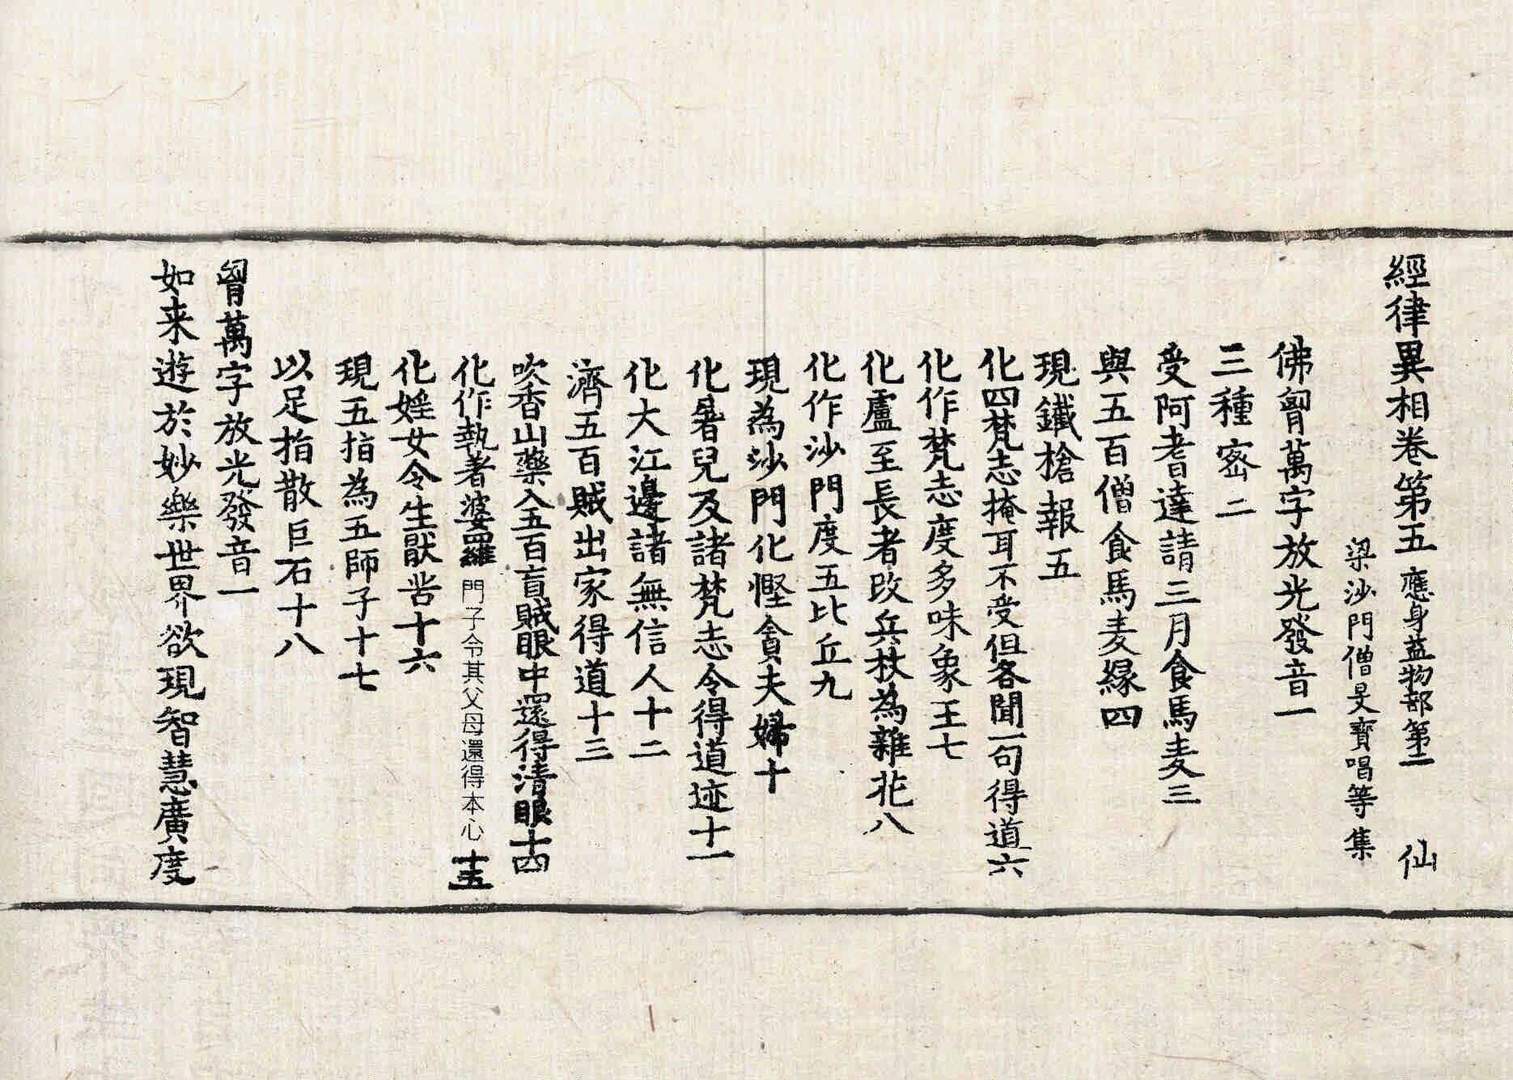 經律異相卷第五 應身益物部第二 仙
梁沙門僧旻寶唱等集
佛胷萬字放光發音一
三種密二
受阿耆達請三月食馬麦三
與五百僧食馬麦縁四
現鐵槍報五
化四梵志掩耳不受但各聞一句得道六
化作梵志度多味象王七
化盧至長者改兵杖為雜花八
化作沙門度五比丘九
現為沙門化慳貪夫婦十
化暑兒及諸梵志令得道迹十一
化大江邊諸無信人十二
濟五百賊出家得道十三
吹香山藥入五百盲賊眼中還得清眼十四
化作執著婆羅門子令其父母還得本心十五
化婬女令生猒苦十六
現五指為五師子十七
以足指散巨石十八
胷萬字放光發音一
如来遊於妙樂世界欲現智慧廣度